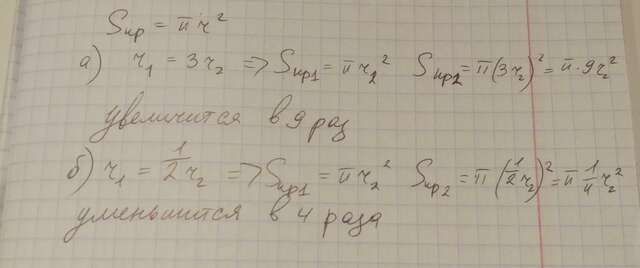 Sкр = πr²
а) r₁ = 3r₂ => Sкр1 = πr₂² Sкр2 = π(3r₂)² = π·9r₂²
увеличится в 9 раз
б) r₁ = 1/2 r₂ => Sкр1 = πr₂² Sкр2 = π(1/2 r₂)² = π 1/4 r₂²
уменьшится в 4 раза